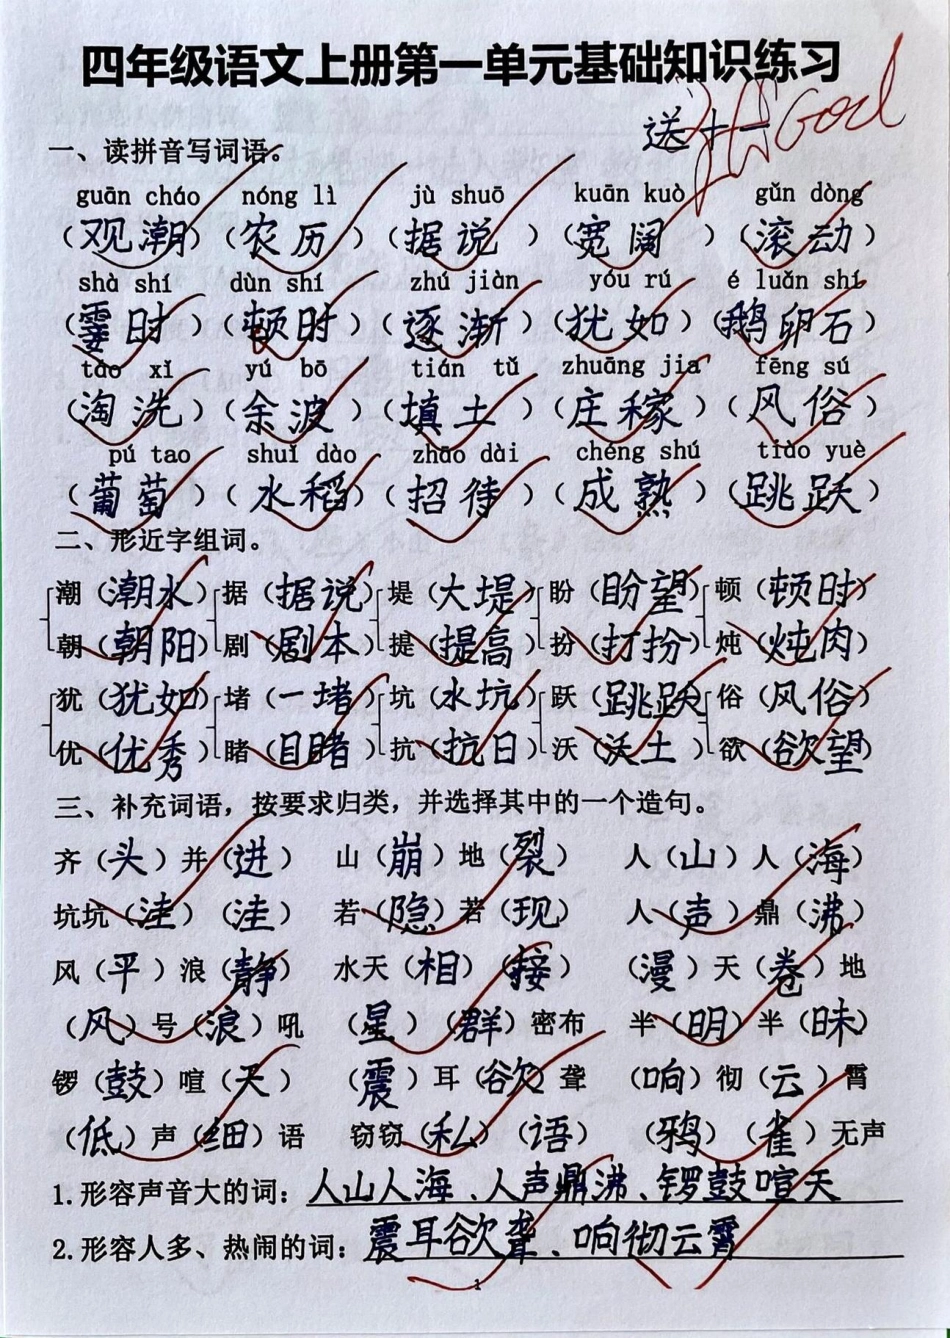 四年级语文上册第一单元基础知识练习
送十一
Good
一、读拼音写词语。
guān cháo nóng lì jù shuō kuān kuò gǔn dòng
（观潮）（农历）（据说）（宽阔）（滚动）
shà shí dùn shí zhú jiàn yóu rú é luǎn shí
（霎时）（顿时）（逐渐）（犹如）（鹅卵石）
táo xǐ yú bō tián tǔ zhuāng jia fēng sú
（淘洗）（余波）（填土）（庄稼）（风俗）
pú tao shuǐ dào zhāo dài chéng shú tiào yuè
（葡萄）（水稻）（招待）（成熟）（跳跃）
二、形近字组词。
潮（潮水） 据（据说） 堤（大堤） 盼（盼望） 顿（顿时）
朝（朝阳） 剧（剧本） 提（提高） 扮（打扮） 炖（炖肉）
犹（犹如） 堵（一堵） 坑（水坑） 跃（跳跃） 俗（风俗）
优（优秀） 睹（目睹） 抗（抗日） 沃（沃土） 欲（欲望）
三、补充词语，按要求归类，并选择其中的一个造句。
齐（头）并（进） 山（崩）地（裂） 人（山）人（海）
坑坑（洼）（洼） 若（隐）若（现） 人（声）鼎（沸）
风（平）浪（静） 水天（相）（接） （漫）天（卷）地
（风）号（浪）吼 （星）（群）密布 半（明）半（昧）
锣（鼓）喧（天） （震）耳（欲）聋 （响）彻（云）霄
（低）声（细）语 窃窃（私）（语） （鸦）（雀）无声
1.形容声音大的词：人山人海、人声鼎沸、锣鼓喧天
2.形容人多、热闹的词：震耳欲聋、响彻云霄
1